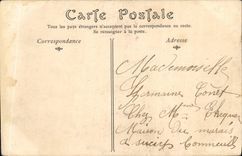 Carte Postale
Tous les pays étrangers n'acceptent pas la correspondance au recto.
Se renseigner à la poste.
Correspondance
Adresse
Mademoiselle
Germaine Conet
Chez Mme
Maison du marais